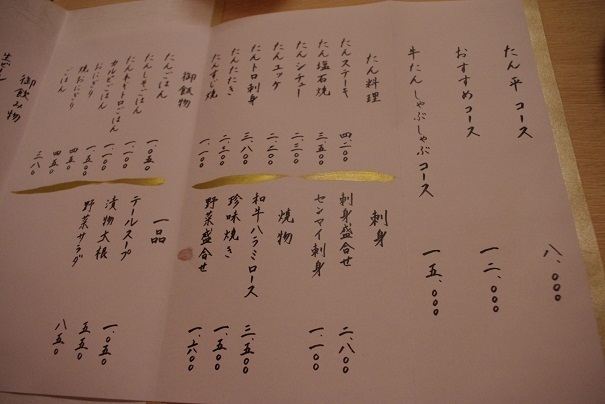 たん平 コース 八、〇〇〇
おすすめコース 一二、〇〇〇
牛たんしゃぶしゃぶコース 一五、〇〇〇
たん料理
たんステーキ 四、二〇〇
たん塩石焼 三、五〇〇
たんシチュー 二、三〇〇
たんユッケ 二、二〇〇
たんトロ刺身 三、八〇〇
たんたたき 二、三〇〇
たんすじ焼 一、一〇〇
刺身
刺身盛合せ 二、八〇〇
センマイ刺身 一、一〇〇
焼物
和牛ハラミロース 三、五〇〇
珍味焼き 一、五〇〇
野菜盛合せ 一、六〇〇
御飯物
たんごはん 一、〇五〇
たんしそごはん 一、一〇〇
たんネギトロごはん 一、一〇〇
カルビごはん 一、五〇〇
おにぎり 四五〇
焼おにぎり 四五〇
ごはん 三八〇
一品
テールスープ 一、〇五〇
漬物大根 五五〇
野菜サラダ 八五〇
御飲み物